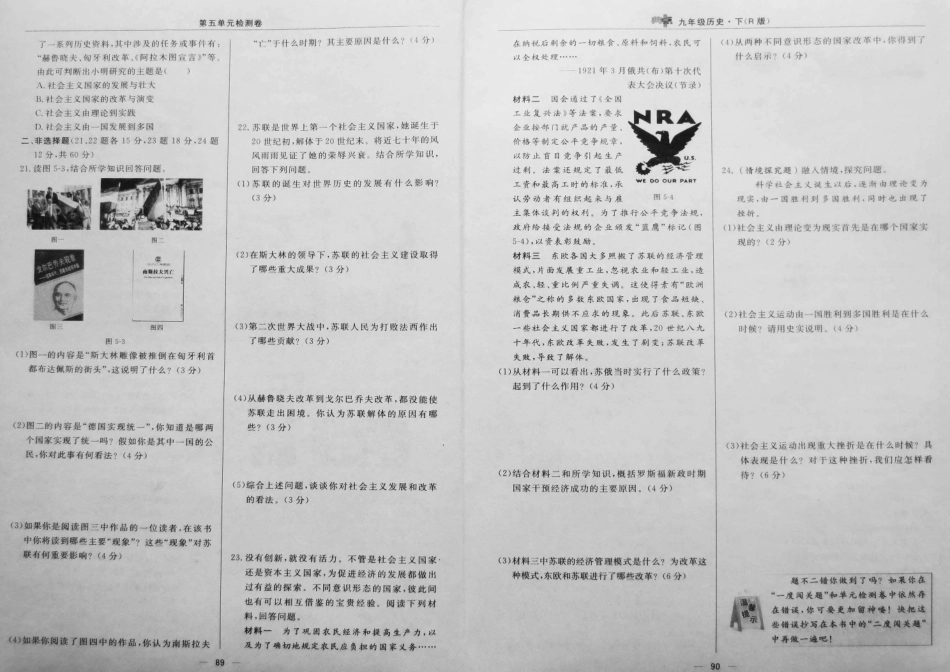 第五单元检测卷
了一系列历史资料,其中涉及的任务或事件有:
“赫鲁晓夫、匈牙利改革、《阿拉木图宣言》”等。
由此可判断出小明研究的主题是(　　)
A.社会主义国家的发展与壮大
B.社会主义国家的改革与演变
C.社会主义由理论到实践
D.社会主义由一国发展到多国
二、非选择题(21、22题各15分,23题18分,24题
12分,共60分)
21.读图5-3,结合所学知识回答问题。
图一
图二
戈尔巴乔夫现象
南斯拉夫死亡
图三
图四
图5-3
(1)图一的内容是“斯大林雕像被推倒在匈牙利首
都布达佩斯的街头”,这说明了什么?(3分)
(2)图二的内容是“德国实现统一”,你知道是哪两
个国家实现了统一吗? 假如你是其中一国的公
民,你对此事有何看法?(4分)
(3)如果你是阅读图三中作品的一位读者,在该书
中你将读到哪些主要“现象”? 这些“现象”对苏
联有何重要影响?(4分)
(4)如果你阅读了图四中的作品,你认为南斯拉夫
“亡”于什么时期? 其主要原因是什么?(4分)
22.苏联是世界上第一个社会主义国家,她诞生于
20世纪初,解体于20世纪末。将近七十年的风
风雨雨见证了她的荣辱兴衰。结合所学知识,
回答下列问题。
(1)苏联的诞生对世界历史的发展有什么影响?
(3分)
(2)在斯大林的领导下,苏联的社会主义建设取得
了哪些重大成果?(3分)
(3)第二次世界大战中,苏联人民为打败法西作出
了哪些贡献?(3分)
(4)从赫鲁晓夫改革到戈尔巴乔夫改革,都没能使
苏联走出困境。你认为苏联解体的原因有哪
些?(3分)
(5)综合上述问题,谈谈你对社会主义发展和改革
的看法。(3分)
23.没有创新,就没有活力。不管是社会主义国家
还是资本主义国家,为促进经济的发展都做出
过有益的探索。不同意识形态的国家,彼此间
也有可以相互借鉴的宝贵经验。阅读下列材
料,回答问题。
材料一 为了巩固农民经济和提高生产力,以
及为了确切地规定农民应负担的国家义务……
89
九年级历史·下(R版)
在纳税后剩余的一切粮食、原料和饲料,农民可
以全权处理……
——1921年3月俄共(布)第十次代
表大会决议(节录)
材料二 国会通过了《全国
工业复兴法》等法案,要求
企业按部门就产品的产量、
价格等制定公平竞争规章,
以防止盲目竞争引起生产
过剩。法案还规定了最低
工资和最高工时的标准,承
认劳动者有组织起来与雇
主集体谈判的权利。为了推行公平竞争法规,
政府给接受法规的企业颁发“蓝鹰”标记(图
5-4),以资表彰鼓励。
NRA
U.S.
WE DO OUR PART
图5-4
材料三 东欧各国大多照搬了苏联的经济管理
模式,片面发展重工业,忽视农业和轻工业,造
成农、轻、重比例严重失调。这使得素有“欧洲
粮仓”之称的多数东欧国家,出现了食品短缺、
消费品长期供不应求的现象。此后苏联、东欧
一些社会主义国家都进行了改革,20世纪八九
十年代,东欧改革失败,发生了剧变;苏联改革
失败,导致了解体。
(1)从材料一可以看出,苏俄当时实行了什么政策?
起到了什么作用?(4分)
(2)结合材料二和所学知识,概括罗斯福新政时期
国家干预经济成功的主要原因。(4分)
(3)材料三中苏联的经济管理模式是什么? 为改革这
种模式,东欧和苏联进行了哪些改革?(6分)
(4)从两种不同意识形态的国家改革中,你得到了
什么启示?(4分)
24.(情境探究题)融入情境,探究问题。
科学社会主义诞生以后,逐渐由理论变为
现实,由一国胜利到多国胜利,同时也出现了
挫折。
(1)社会主义由理论变为现实首先是在哪个国家实
现的?(2分)
(2)社会主义运动由一国胜利到多国胜利是在什么
时候? 请用史实说明。(4分)
(3)社会主义运动出现重大挫折是在什么时候? 具
体表现是什么? 对于这种挫折,我们应怎样看
待?(6分)
温馨提示
题不二错你做到了吗? 如果你在
“一度闯关题”和单元检测卷中依然存
在错误,你可要更加留神喽! 快把这
些错误抄写在本书中的“二度闯关题”
中再做一遍吧!
90